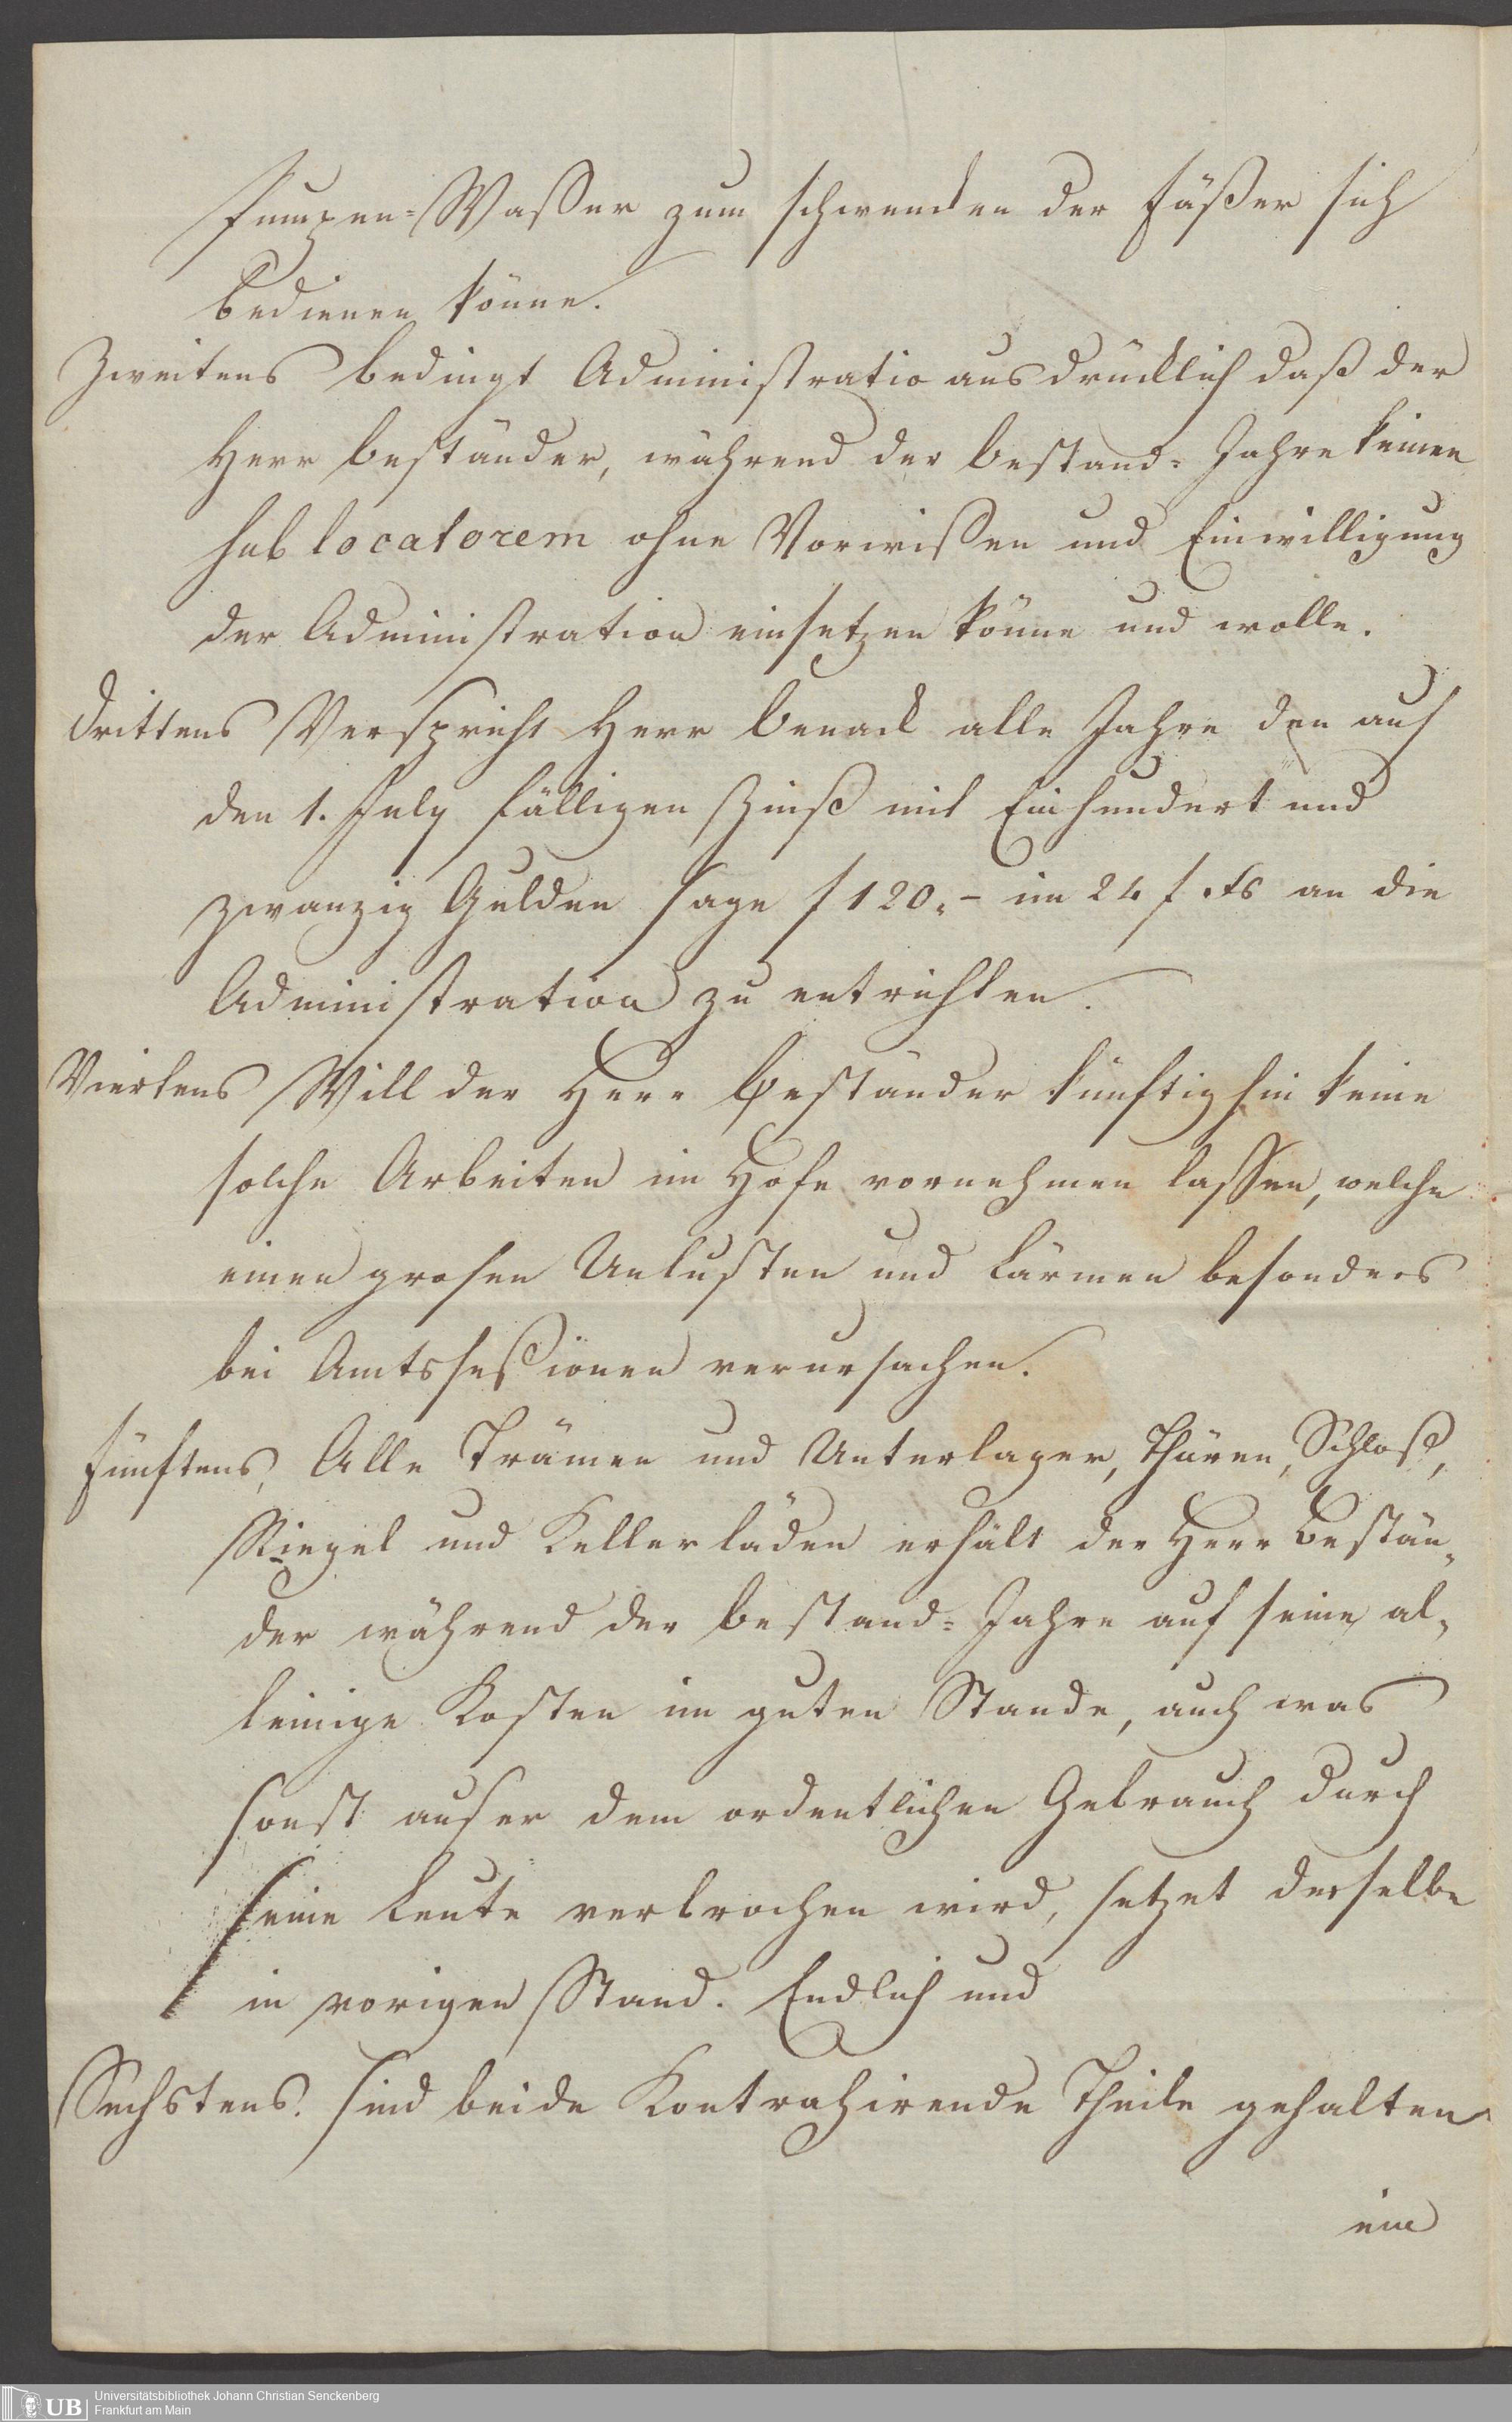 Pumpen-Waßer zum schwenken der Fäßer sich
bedienen könne.
Zweitens bedingt Administratio ausdrücklich daß der
Herr Beständer, während der Bestand-Jahre keinen
sub locatorem ohne Vorwißen und Einwilligung
der Administration einsetzen könne und wolle.
Drittens Verspricht Herr Benack alle Jahre den auf
den 1. July fälligen Zinß mit Einhundert und
zwanzig Gulden sage f 120.- im 24 f. fs an die
Administration zu entrichten.
Viertens Will der Herr Beständer künftighin keine
solche Arbeiten im Hofe vornehmen laßen, welche
einen grosen Unlusten und Lärmen besonders
bei Amtsseßionen verursachen.
Fünftens, Alle Trämen und Unterlager, Thüren, Schloß,
Riegel und Kellerläden erhält der Herr Bestän-
der während der Bestand-Jahre auf seine al-
leinige Kosten im guten Stande, auch was
sonst auser dem ordentlichen Gebrauch durch
seine Leute verbrochen wird, setzet derselbe
in vorigen Stand. Endlich und
Sechstens. sind beide Kontrahirende Theile gehalten
ein
UB
Universitätsbibliothek Johann Christian Senckenberg
Frankfurt am Main